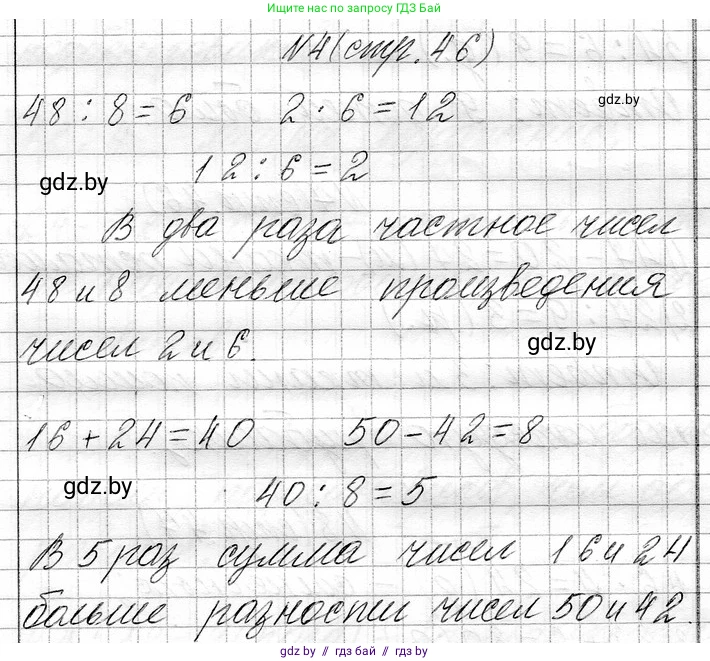 Ищите нас по запросу ГДЗ Бай
N4 (стр. 46)
48 : 8 = 6 2 · 6 = 12
gdz.by
12 : 6 = 2
gdz.by
В два раза частное чисел
48 и 8 меньше произведения
чисел 2 и 6.
gdz.by
16 + 24 = 40 50 - 42 = 8
gdz.by
40 : 8 = 5
В 5 раз сумма чисел 16 и 24
больше разности чисел 50 и 42.
gdz.by // гдз бай // gdz.by